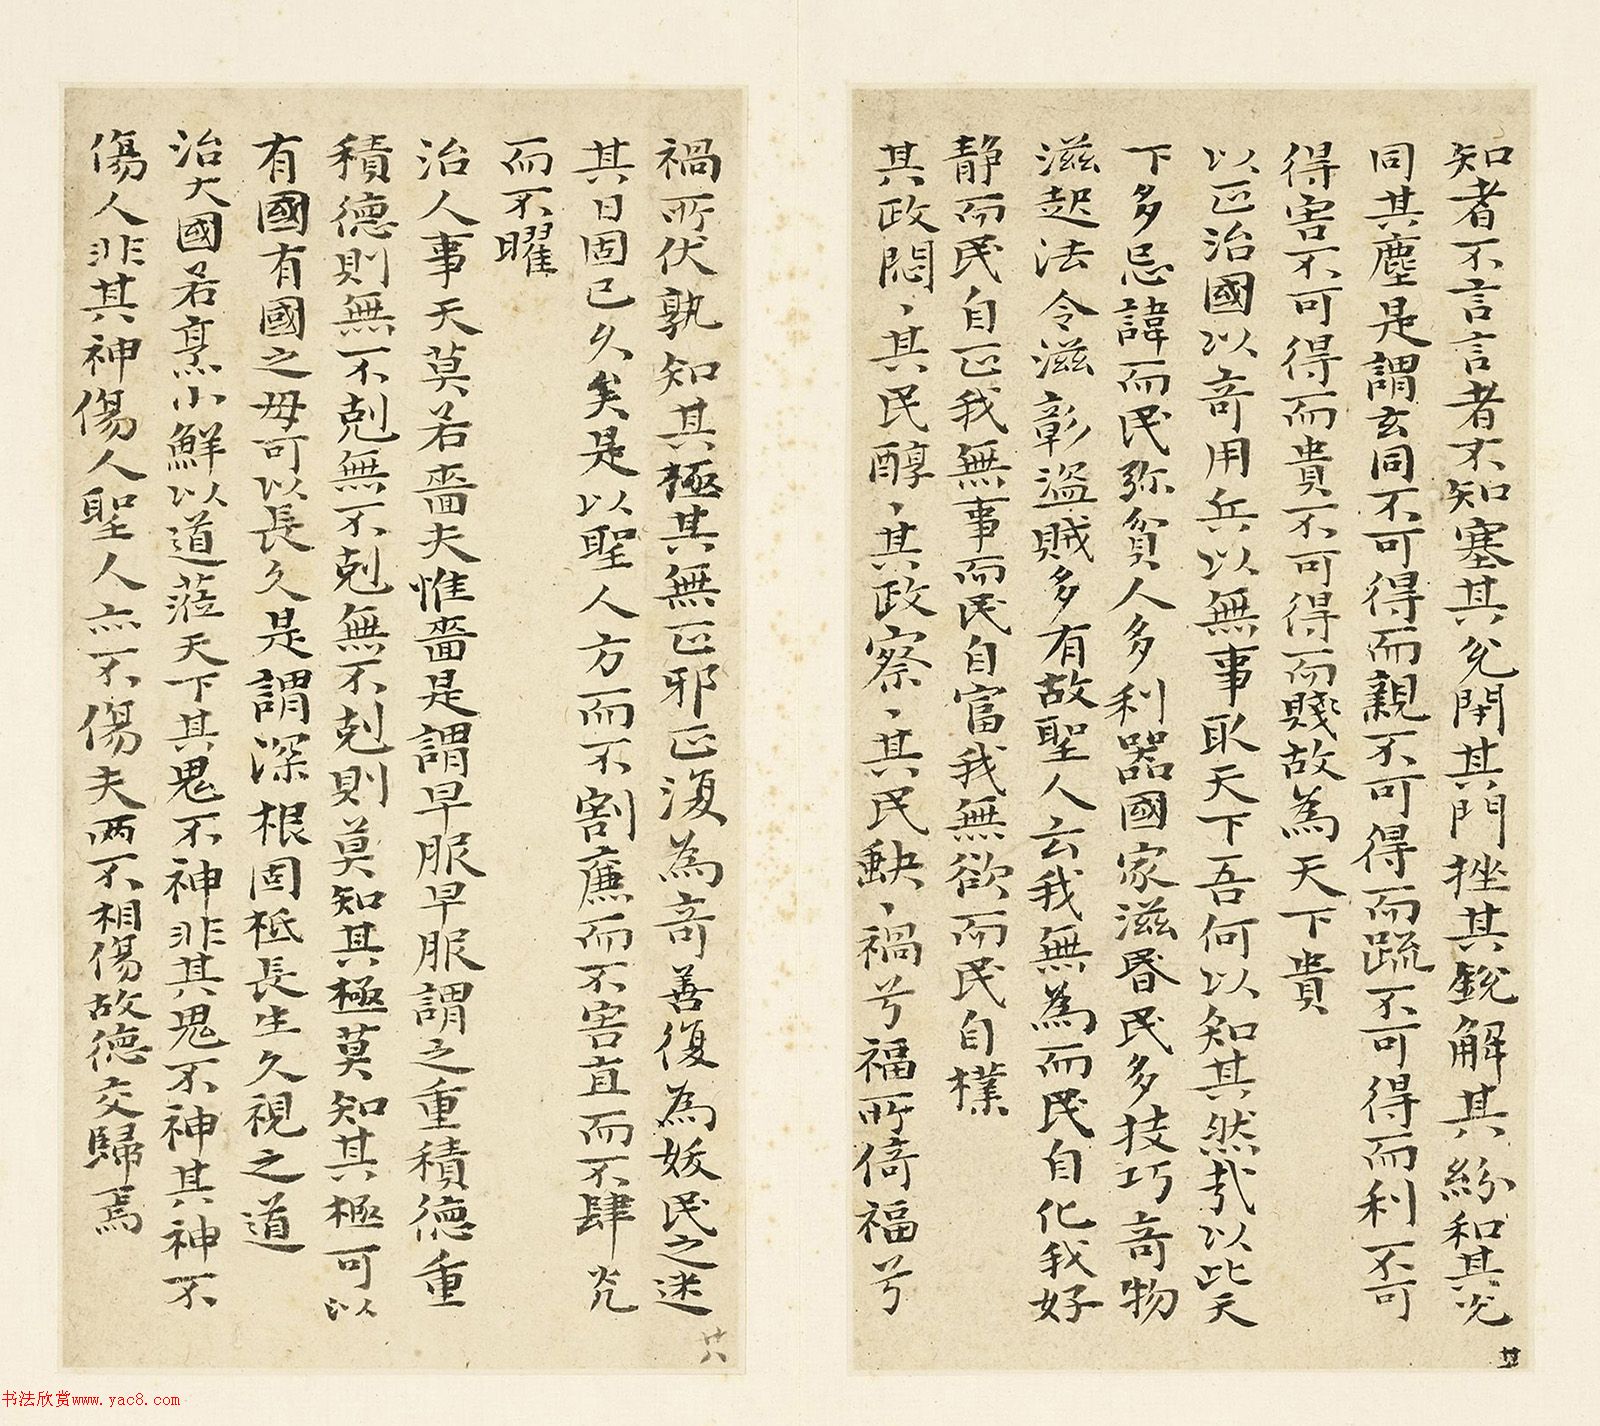 知者不言言者不知塞其兊閇其門挫其銳解其紛和其光
同其塵是謂玄同不可得而親不可得而疏不可得而利不可
得害不可得而貴不可得而賤故為天下貴
以正治國以奇用兵以無事取天下吾何以知其然哉以此天
下多忌諱而民弥貧人多利器國家滋昏民多技巧奇物
滋起法令滋彰盜賊多有故聖人云我無為而民自化我好
静而民自正我無事而民自富我無欲而民自樸
其政悶〻其民醇〻其政察〻其民缺〻禍兮福所倚福兮
禍所伏孰知其極其無正邪正復為奇善復為妖民之迷
其日固已久矣是以聖人方而不割廉而不害直而不肆光
而不曜
治人事天莫若嗇夫惟嗇是謂早服早服謂之重積德重
積德則無不剋無不剋無不剋則莫知其極莫知其極可以
有國有國之母可以長久是謂深根固柢長生久視之道
治大國若烹小鮮以道蒞天下其鬼不神非其鬼不神其神不
傷人非其神傷人聖人亦不傷夫兩不相傷故德交歸焉
廿八
书法欣赏www.yac8.com